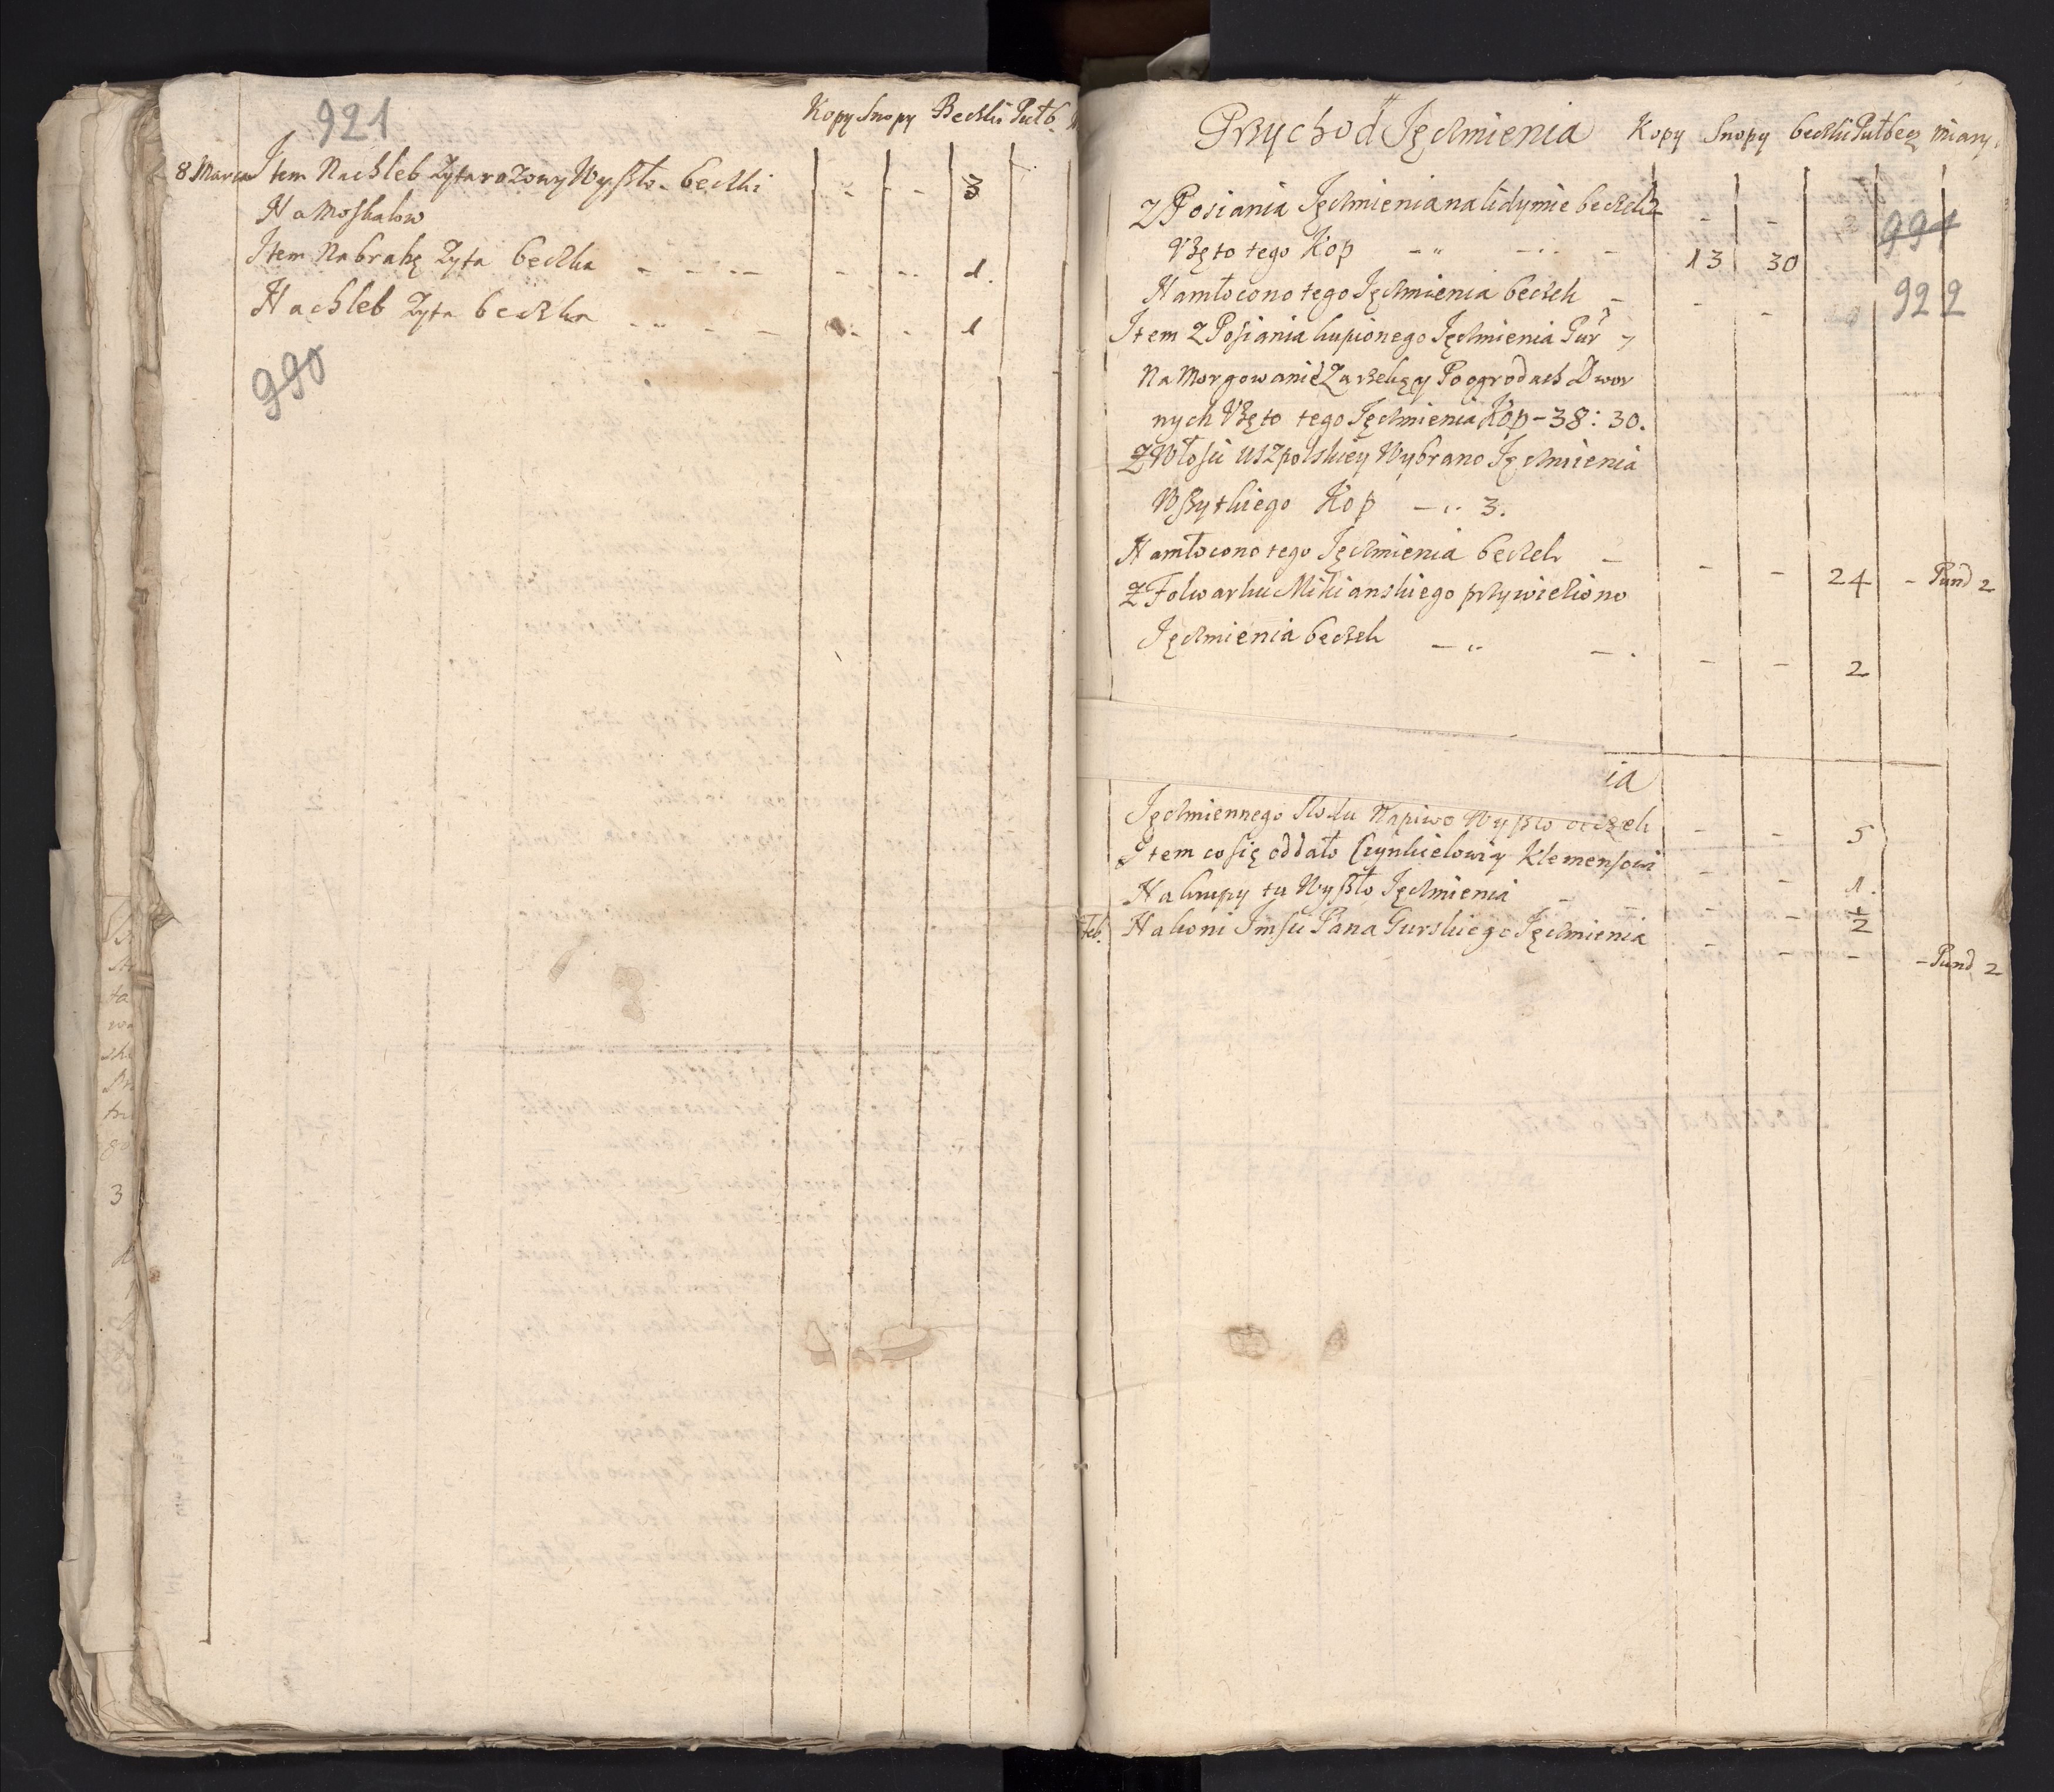 921
Kopy Snopy Beczki Pułb.
8 Marca Item Na chleb żyta razowy Wyszło beczki - - - 3
Na Moskalow
Item Na brahę Zyta beczka - - - - - - 1.
Na chleb Zyta beczka - - - - - 1
990
Przychod Jęczmienia Kopy Snopy beczki Pułbecz miary.
Z Posiania Jęczmienia na lidymie beczek 2 - -
991
Wzęto tego Kop - - - 13 30
922
Namłocono tego Jęczmienia beczek - - -
Item Z Posiania kupionego Jęczmienia Pur 7
Na Morgowanie Za rzekęy Po ogrodach Dwor
nych Wzęto tego Jęczmienia Kop - 38 : 30.
Z Włosci Uszpolskiey Wybrano Jęczmienia
Wszytkiego Kop - 3.
Namłocono tego Jęczmienia beczek - - - 24 - Pund 2
Z Folwarku Mikianskiego przywieziono
Jęczmienia beczek - - - - 2
ia
Jęczmiennego Słodu Na piwo Wyszło beczek - - 5
Item co się oddało Klemensowi - - 1.
Na krupy tu Wyszło Jęczmienia - - - - 1/2
Feb. Na koni Jmsci Pana Gurskiego Jęczmienia - - - - Pund 2